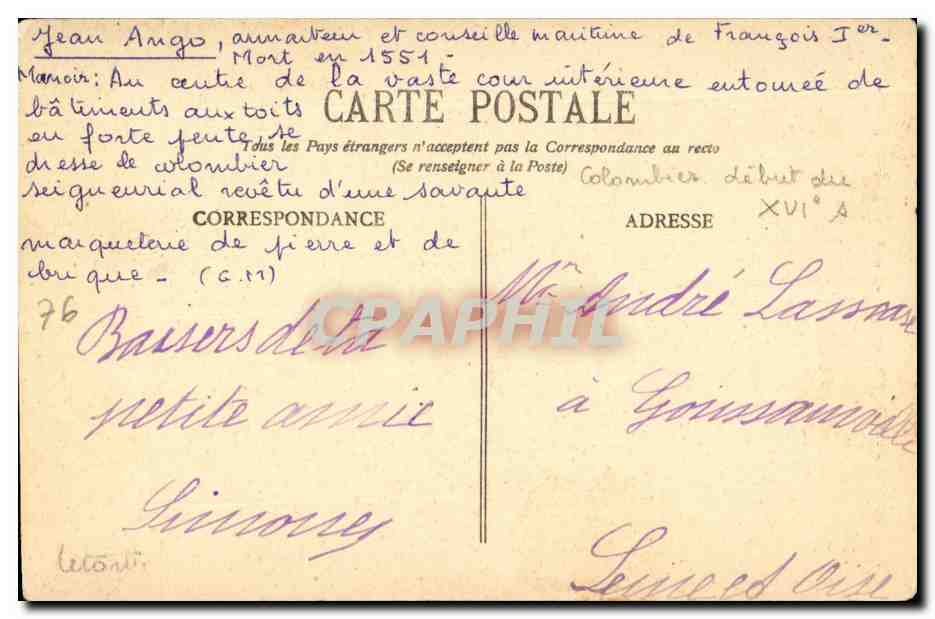 Jean Ango, armateur et conseille maritime de François Ier -
Mort en 1551 -
Manoir : Au centre de la vaste cour intérieure entourée de
bâtiments aux toits
en forte pente, se
dresse le colombier
seigneurial revêtu d'une savante
marqueterie de pierre et de
brique - (G.M)
CARTE POSTALE
Tous les Pays étrangers n'acceptent pas la Correspondance au recto
(Se renseigner à la Poste)
Colombier début du
XVI° s
CORRESPONDANCE
ADRESSE
76
CPAPHIL
Baisers de ta
petite amie
Simone
Mr André
à Goussainville
Seine et Oise